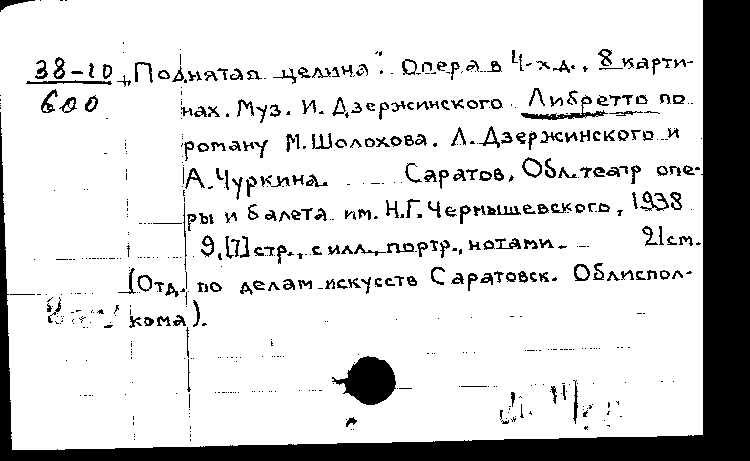 38-10 „Поднятая целина". Опера в 4-х д., 8 карти-
600 нах. Муз. И. Дзержинского. Либретто по
роману М. Шолохова. Л. Дзержинского и
А. Чуркина. Саратов, Обл. театр опе-
ры и балета им. Н.Г. Чернышевского, 1938
9, [7] стр., с илл., портр., нотами. 21 см.
(Отд. по делам искусств Саратовск. Облиспол-
кома).